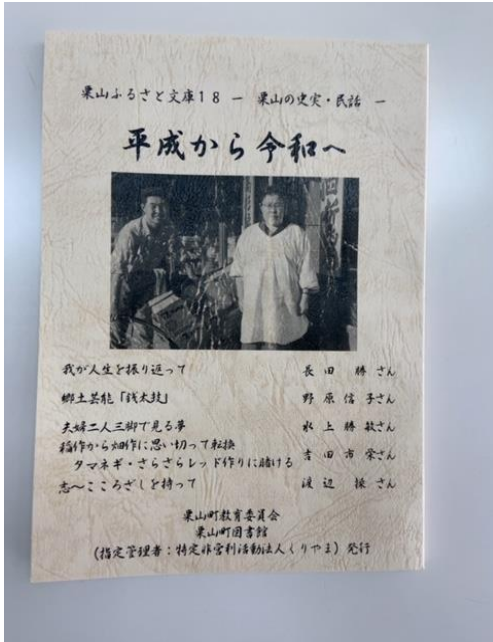 栗山ふるさと文庫18 － 栗山の史実・民話 －
平成から令和へ
我が人生を振り返って 長田 勝さん
郷土芸能「銭太鼓」 野原信子さん
夫婦二人三脚で見る夢 水上勝敏さん
稲作から畑作に思い切って転換
タマネギ・さらさらレッド作りに賭ける 吉田市栄さん
志～こころざしを持って 渡辺 操さん
栗山町教育委員会
栗山町図書館
(指定管理者：特定非営利活動法人くりやま) 発行